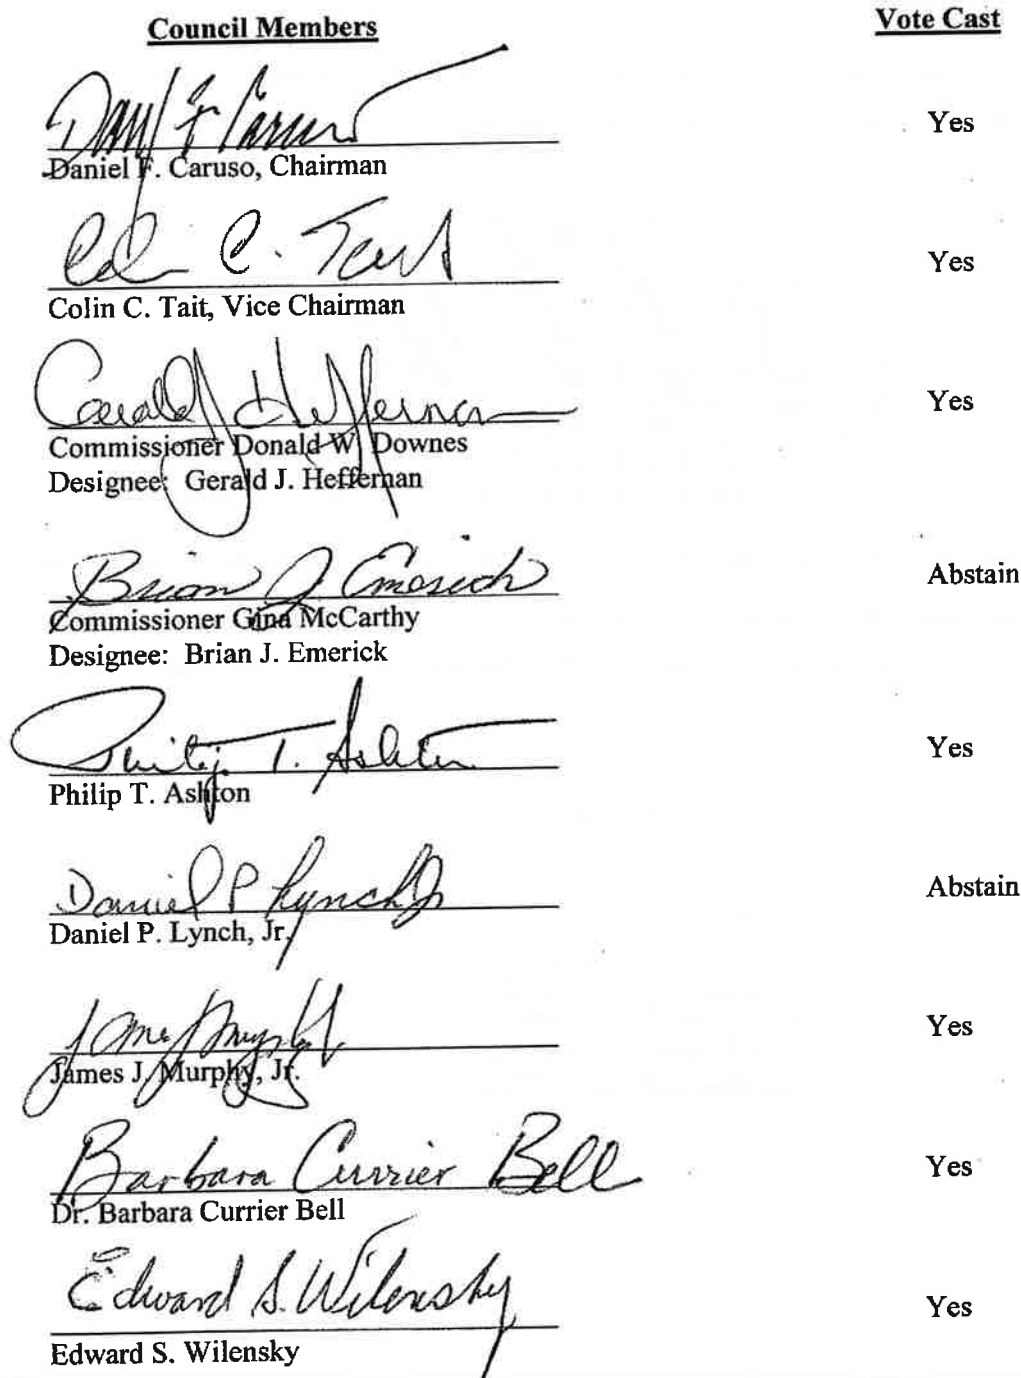 Council Members Vote Cast
Daniel F Caruso
Yes
Daniel F. Caruso, Chairman
Colin C. Tait
Yes
Colin C. Tait, Vice Chairman
Gerald J Heffernan
Yes
Commissioner Donald W. Downes
Designee: Gerald J. Heffernan
Brian J Emerick
Abstain
Commissioner Gina McCarthy
Designee: Brian J. Emerick
Philip T. Ashton
Yes
Philip T. Ashton
Daniel P Lynch Jr
Abstain
Daniel P. Lynch, Jr.
James J Murphy Jr
Yes
James J. Murphy, Jr.
Barbara Currier Bell
Yes
Dr. Barbara Currier Bell
Edward S. Wilensky
Yes
Edward S. Wilensky